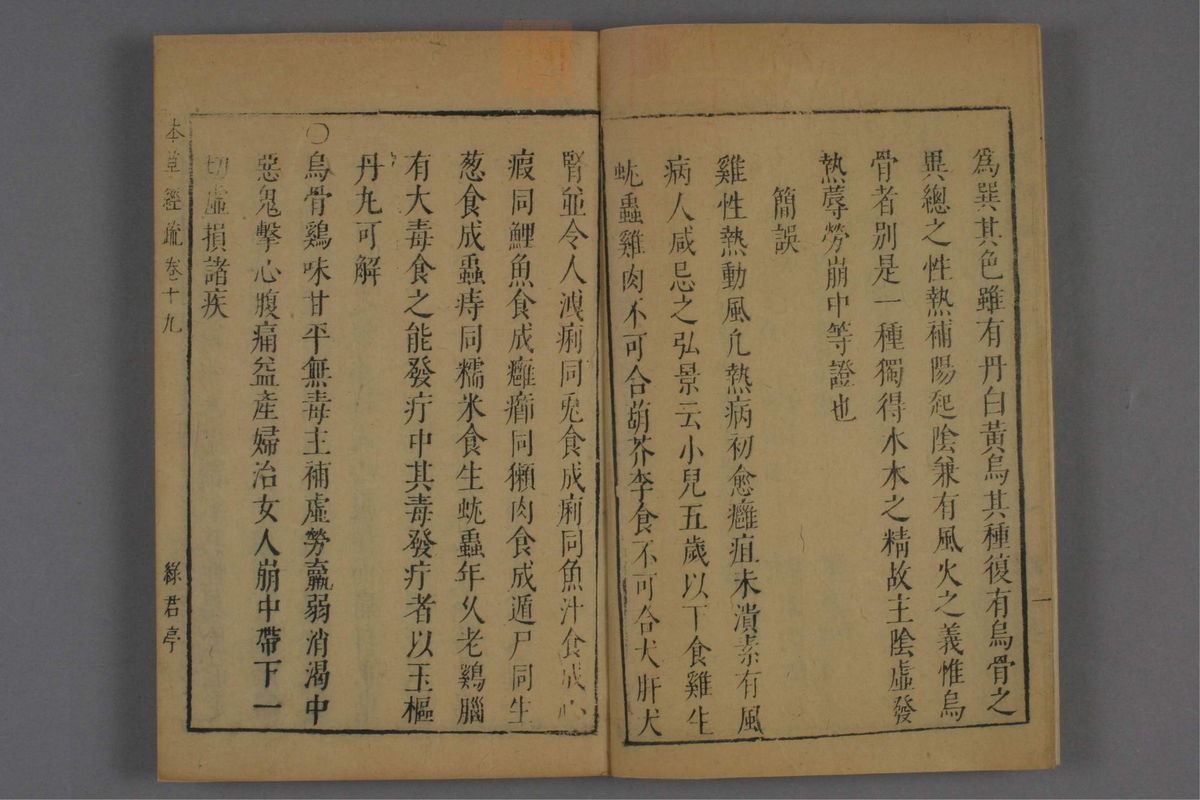 為巽其色雖有丹白黃烏其種復有烏骨之
異總之性熱補陽起陰兼有風火之義惟烏
骨者別是一種獨得水木之精故主陰虛發
熱蓐勞崩中等證也
簡誤
雞性熱動風凢熱病初愈癰疽未潰素有風
病人咸忌之弘景云小兒五歲以下食雞生
蚘蟲雞肉不可合葫芥李食不可合犬肝犬
腎並令人洩痢同兎食成痢同魚汁食成心
瘕同鯉魚食成癰癤同獺肉食成遁尸同生
葱食成蟲痔同糯米食生蚘蟲年久老鷄腦
有大毒食之能發疔中其毒發疔者以玉樞
丹丸可解
〇
烏骨鷄味甘平無毒主補虛勞羸弱消渴中
惡鬼擊心腹痛益產婦治女人崩中帶下一
切虛損諸疾
本草經疏 卷十九 綠君亭
一